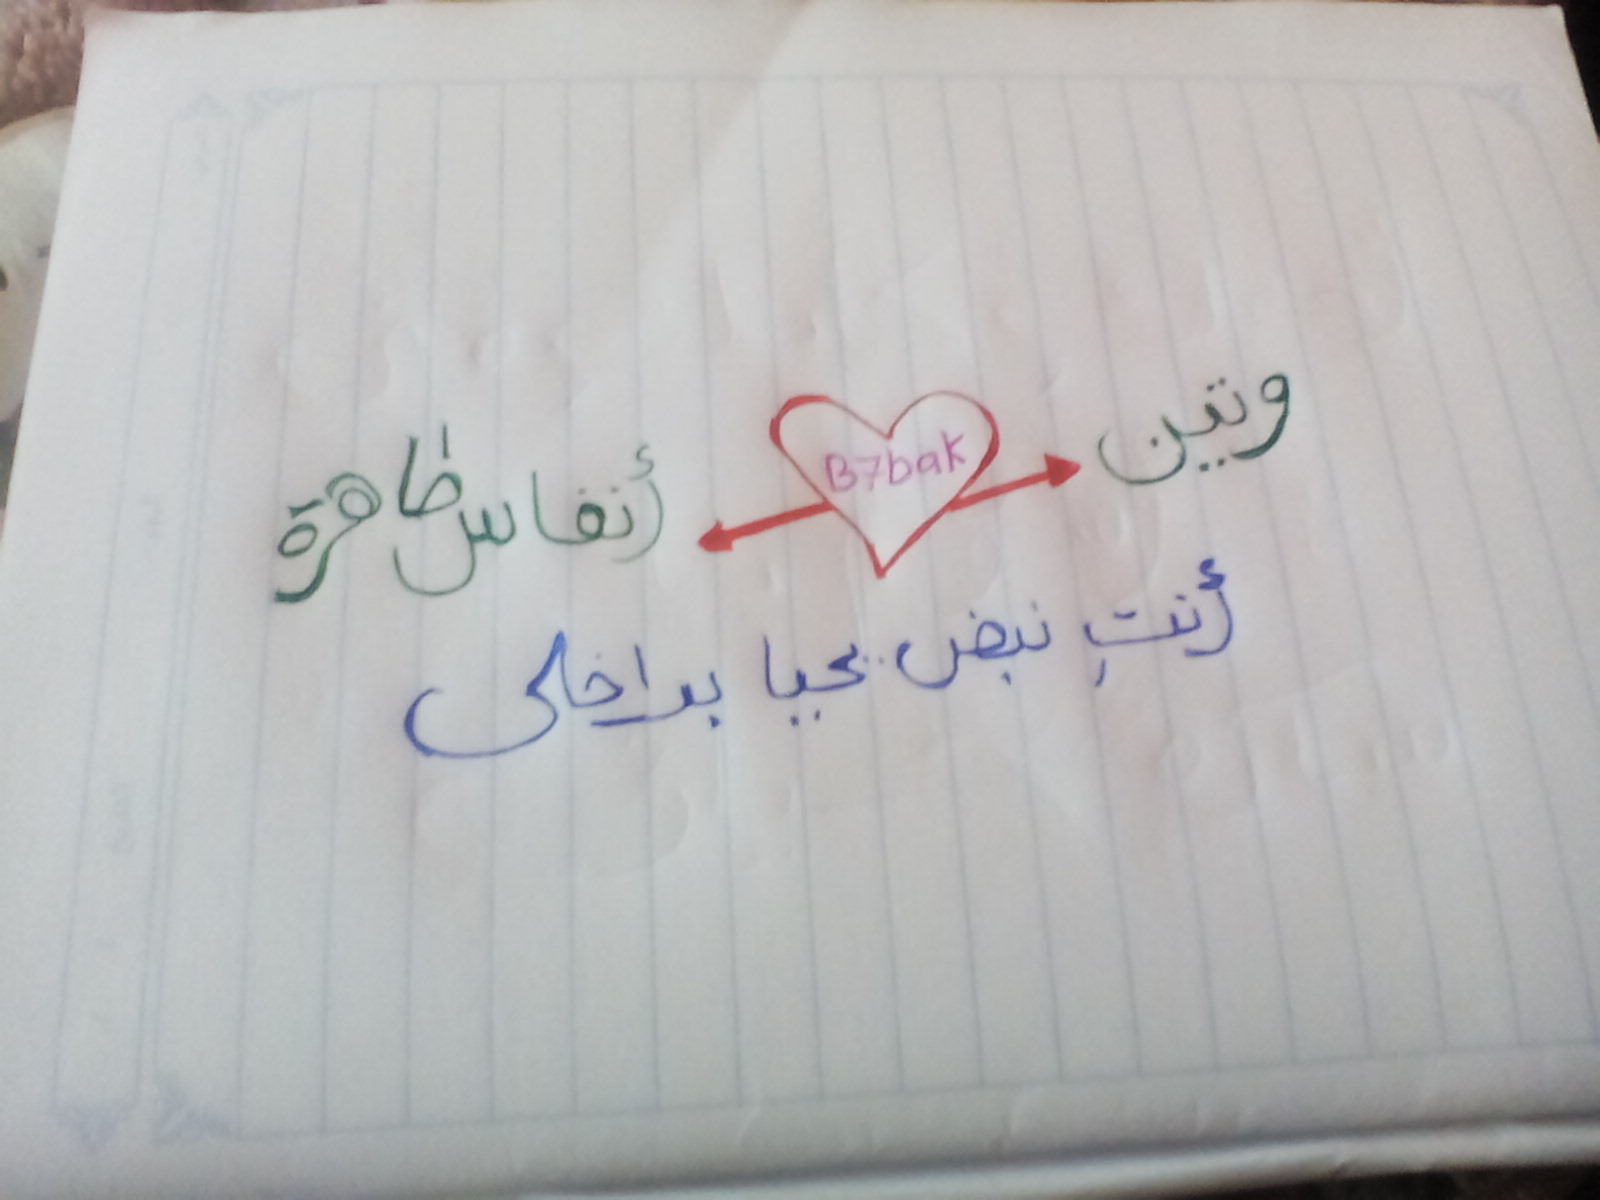 وتين B7bak أنفاس طاهرة
أنتِ نبض يحيا بداخلى